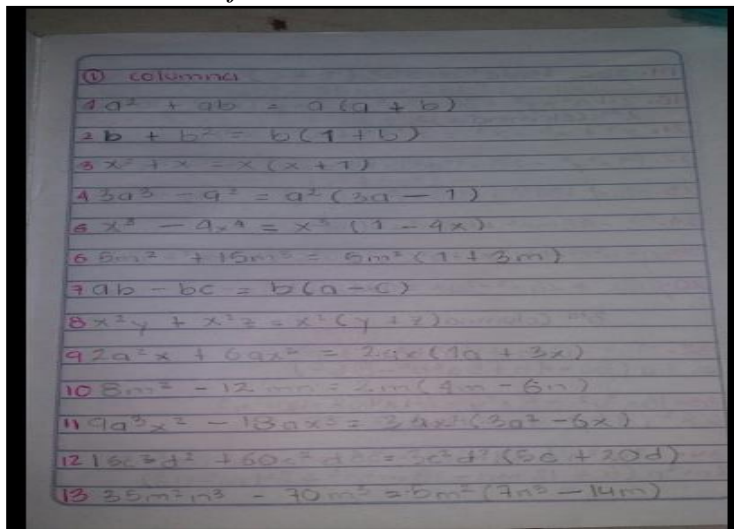 ① columna
1 a² + ab = a (a + b)
2 b + b² = b (1 + b)
3 x² + x = x (x + 1)
4 3a³ - a² = a² (3a - 1)
5 x³ - 4x⁴ = x³ (1 - 4x)
6 5m² + 15m³ = 5m² (1 + 3m)
7 ab - bc = b (a - c)
8 x²y + x²z = x² (y + z)
9 2a²x + 6ax² = 2ax (1a + 3x)
10 8m² - 12 mn = 2m (4m - 6n)
11 9a³x² - 18ax³ = 3ax² (3a² - 6x)
12 15c³d² + 60c²d³ = 3c²d² (5c + 20d)
13 35m²n³ - 70m³ = 5m² (7n³ - 14m)